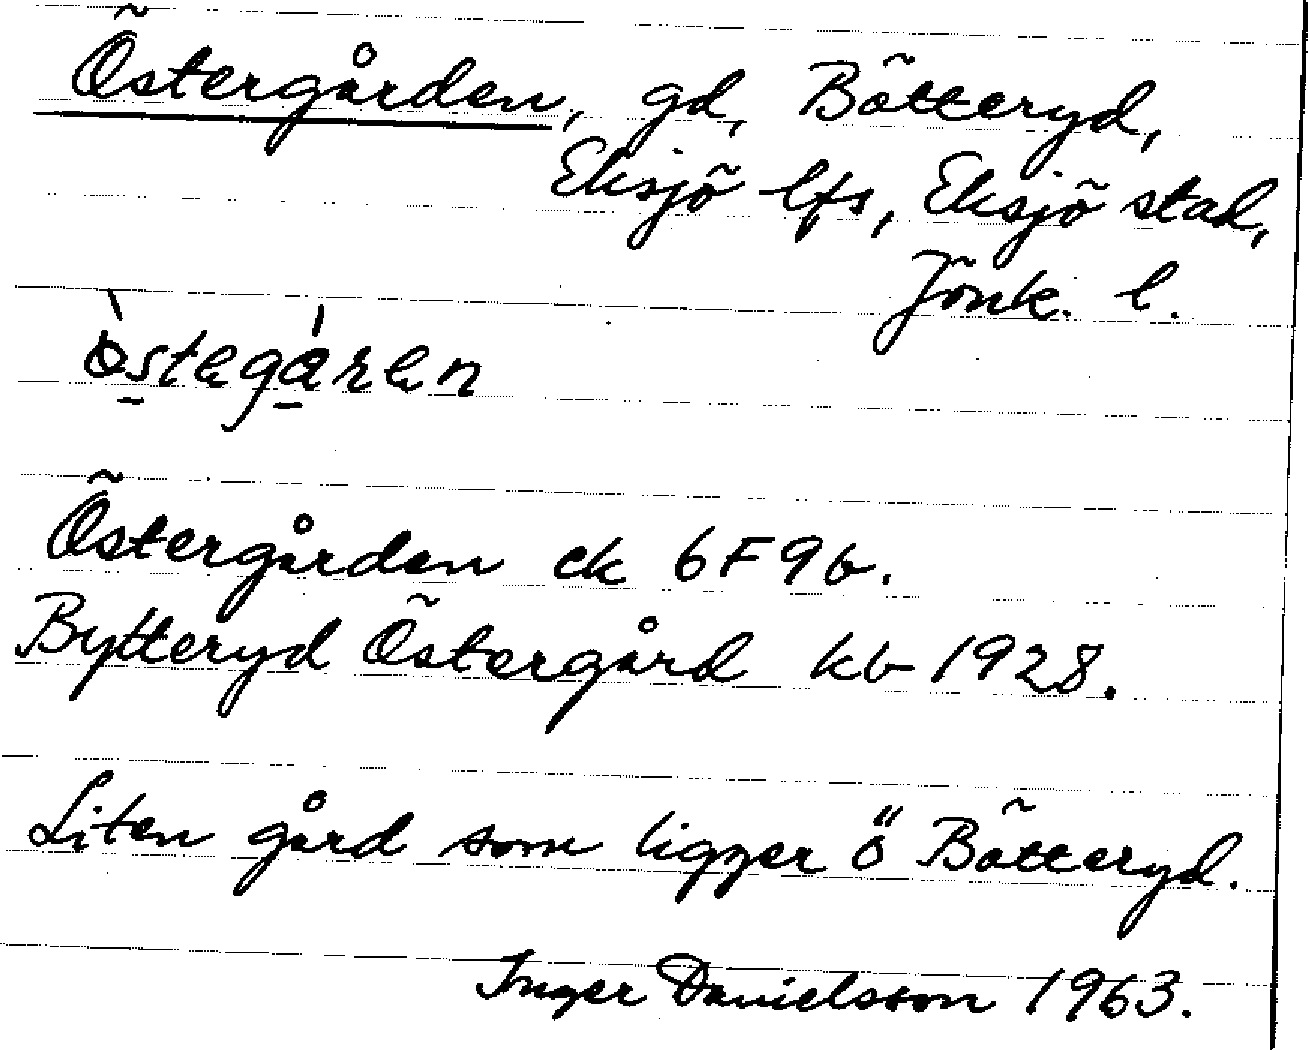 Östergården, gd, Bötteryd,
Eksjö lfs, Eksjö stad,
Jönk. l.
östegåren
Östergården ek 6F9b.
Bytteryd Östergård kb 1928.
Liten gård som ligger ö Bötteryd.
Inger Danielsson 1963.